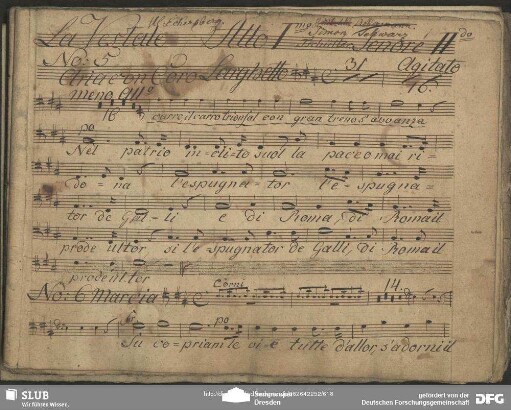 La Vestale Atto I mo Tenore II do
Simon Schwarz
No: 5 31 Agitato
Aria con Coro Larghetto 46.
meno All°
16 carro trionfal con gran treno s'avanza
po
Nel patrio in=cli=to suol la pace omai ri=
do=na l'espugna=tor l'e=spugna=
ter de Gal=li e di Roma, di Roma il
prode ultor si l'e spugnator de Galli, di Roma il
prode ultor
No: 6 Marcia Corni 14.
po
Su co=prian le vi=e tutte d'allor, s'adorni il
SLUB
Wir führen Wissen.
Dresden
gefördert von der
Deutschen Forschungsgemeinschaft
DFG